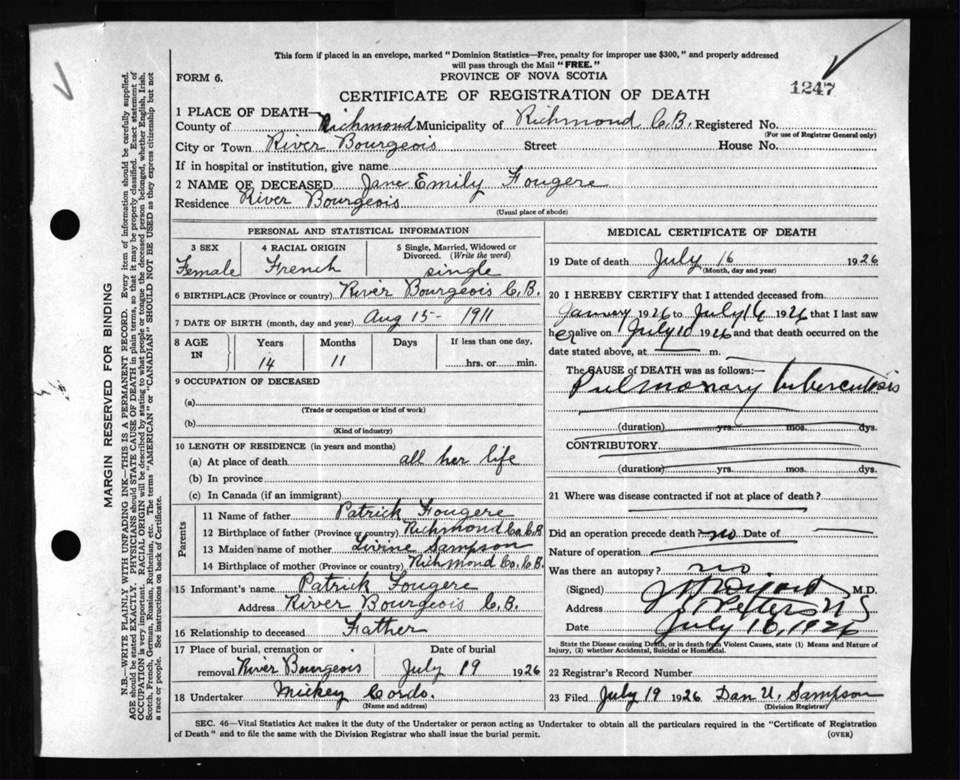 This form if placed in an envelope, marked "Dominion Statistics—Free, penalty for improper use $300," and properly addressed
will pass through the Mail "FREE."
FORM 6.
PROVINCE OF NOVA SCOTIA
CERTIFICATE OF REGISTRATION OF DEATH
1247
1 PLACE OF DEATH—
County of Richmond Municipality of Richmond C.B. Registered No.
(For use of Registrar General only)
City or Town River Bourgeois Street House No.
If in hospital or institution, give name
2 NAME OF DECEASED Jane Emily Fougere
Residence River Bourgeois
(Usual place of abode)
PERSONAL AND STATISTICAL INFORMATION
3 SEX
Female
4 RACIAL ORIGIN
French
5 Single, Married, Widowed or
Divorced. (Write the word)
single
6 BIRTHPLACE (Province or country) River Bourgeois C.B.
7 DATE OF BIRTH (month, day and year) Aug 15 - 1911
8 AGE IN
Years Months Days If less than one day,
14 11 hrs. or min.
9 OCCUPATION OF DECEASED
(a)
(Trade or occupation or kind of work)
(b)
(Kind of industry)
10 LENGTH OF RESIDENCE (in years and months)
(a) At place of death all her life
(b) In province
(c) In Canada (if an immigrant)
Parents
11 Name of father Patrick Fougere
12 Birthplace of father (Province or country) Richmond Co. C.B.
13 Maiden name of mother Levine Sampson
14 Birthplace of mother (Province or country) Richmond Co. C.B.
15 Informant's name Patrick Fougere
Address River Bourgeois C.B.
16 Relationship to deceased Father
17 Place of burial, cremation or Date of burial
removal River Bourgeois July 19 1926
18 Undertaker Mickey Cordo.
(Name and address)
MEDICAL CERTIFICATE OF DEATH
19 Date of death July 16 1926
(Month, day and year)
20 I HEREBY CERTIFY that I attended deceased from
January 1926 to July 16 1926 that I last saw
her alive on July 10 1926 and that death occurred on the
date stated above, at m.
The CAUSE of DEATH was as follows:—
Pulmonary tuberculosis
(duration) yrs. mos. dys.
CONTRIBUTORY
(duration) yrs. mos. dys.
21 Where was disease contracted if not at place of death?
Did an operation precede death? no Date of
Nature of operation
Was there an autopsy? no
(Signed) M.D.
Address St Peters N S
Date July 16, 1926
State the Disease causing Death, or in death from Violent Causes, state (1) Means and Nature of
Injury, (2) whether Accidental, Suicidal or Homicidal.
22 Registrar's Record Number
23 Filed July 19 1926 Dan U. Sampson
(Division Registrar)
SEC. 46—Vital Statistics Act makes it the duty of the Undertaker or person acting as Undertaker to obtain all the particulars required in the "Certificate of Registration
of Death" and to file the same with the Division Registrar who shall issue the burial permit.
(OVER)
MARGIN RESERVED FOR BINDING
N.B.—WRITE PLAINLY WITH UNFADING INK—THIS IS A PERMANENT RECORD. Every item of information should be carefully supplied.
AGE should be stated EXACTLY. PHYSICIANS should STATE CAUSE OF DEATH in plain terms, so that it may be properly classified. Exact statement of
OCCUPATION is very important. RACIAL ORIGIN will be described by stating to what people or tongue the deceased person belonged, whether English, Irish,
Scotch, French, German, Russian, Ruthenian, etc. The terms "AMERICAN" or "CANADIAN" SHOULD NOT BE USED as they express citizenship but not
a race or people. See instructions on back of Certificate.